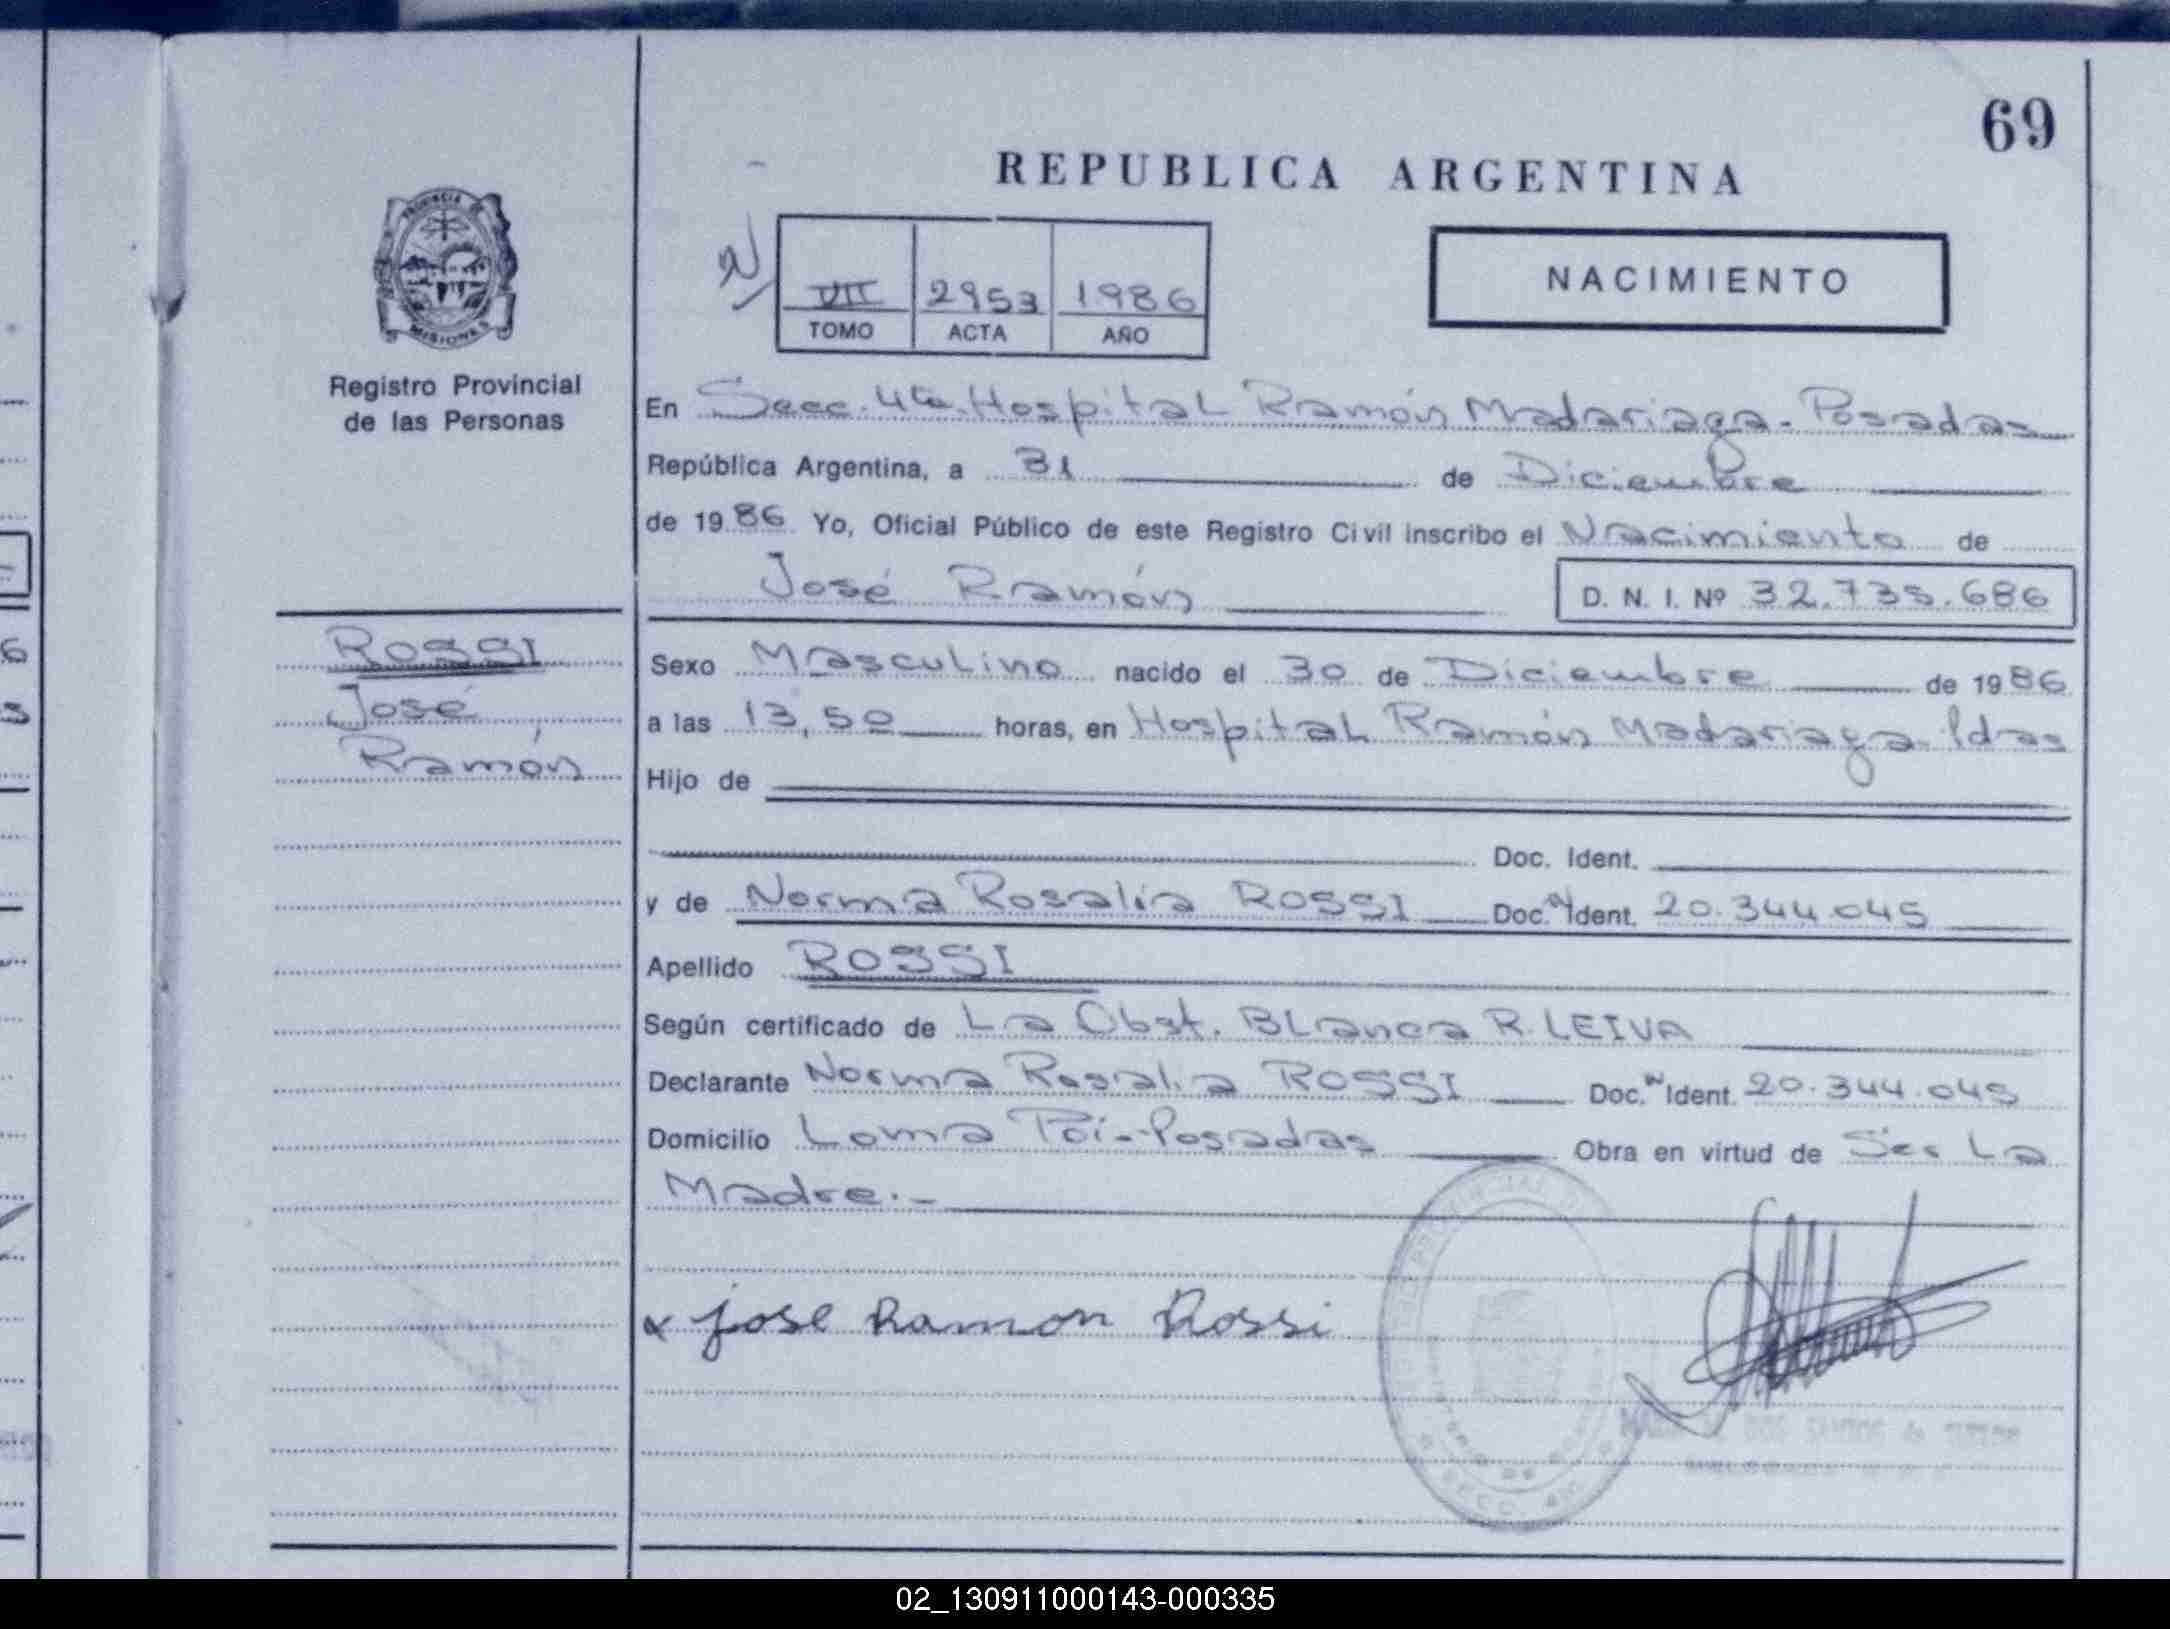 69
REPUBLICA ARGENTINA
PROVINCIA DE
MISIONES
Registro Provincial
de las Personas
VII 2953 1986
TOMO ACTA AÑO
NACIMIENTO
En Secc. 4ta. Hospital Ramón Madariaga - Posadas
República Argentina, a 31 de Diciembre
de 1986 Yo, Oficial Público de este Registro Civil inscribo el Nacimiento de
José Ramón D. N. I. Nº 32.735.686
ROSSI
José
Ramón
Sexo Masculino nacido el 30 de Diciembre de 1986
a las 13,50 horas, en Hospital Ramón Madariaga - Pdas
Hijo de
Doc. Ident.
y de Norma Rosalía ROSSI Doc. Ident. 20.344.045
Apellido ROSSI
Según certificado de La Obst. BLanca R. LEIVA
Declarante Norma Rosalia ROSSI Doc. Ident. 20.344.045
Domicilio Loma Poi - Posadas Obra en virtud de Ser La
Madre.-
x jose Ramon Rossi
02_130911000143-000335